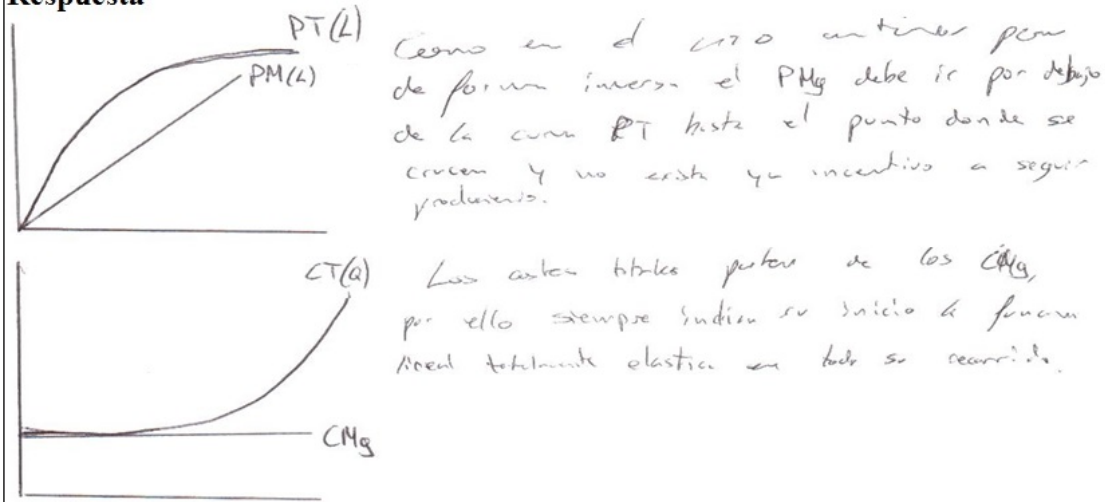 Respuesta
PT(L)
PM(L)
Como en el caso anterior pero
de forma inversa el PMg debe ir por debajo
de la curva PT hasta el punto donde se
crucen y no exista ya incentivo a seguir
produciendo.
CT(Q)
CMg
Los costes totales parten de los CMg,
por ello siempre indican su inicio la funcion
lineal totalmente elastica en todo su recorrido.